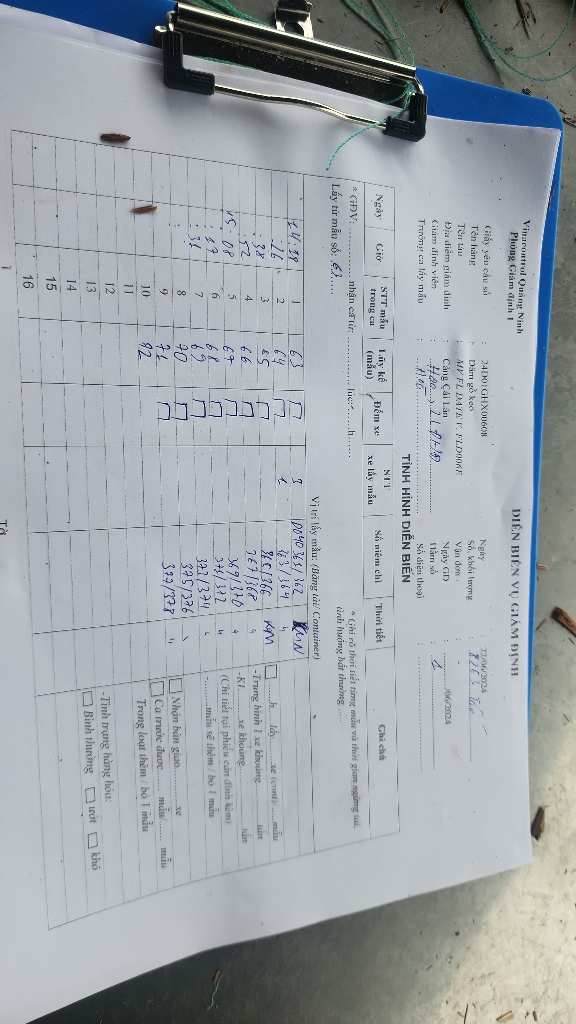 Vinacontrol Quảng Ninh
Phòng Giám định 1
DIỄN BIẾN VỤ GIÁM ĐỊNH
Giấy yêu cầu số : 24D01GHX00608
Ngày : 22/06/2024
Tên hàng : Dăm gỗ keo
Số, khối lượng :
Tên tàu : MV FLDATE V. FLD006E
Vận đơn : -
Địa điểm giám định : Cảng Cái Lân
Ngày GD : ...../06/2024
Giám định viên :
Hầm số : 1
Trưởng ca lấy mẫu :
Số điện thoại :
TÌNH HÌNH DIỄN BIẾN
Ngày Giờ STT mẫu trong ca Lũy kế (mẫu) Đếm xe STT xe lấy mẫu Số niêm chì Thời tiết Ghi chú
* GĐV: ............ nhận ca từ: ............ lúc: ......h......
Lấy từ mẫu số: 63
* Ghi rõ thời tiết từng mẫu và thời gian ngừng do
ảnh hưởng bất thường ...
Vị trí lấy mẫu (Băng tải/ Container)
1 63 3
2 64 1 363/364 "
: 38 3 65 365/366
: 52 4 66 367/368 "
15 : 08 5 67 369/370 "
6 68 371/372 "
: 31 7 69 373/374 "
: 8 70 375/376
: 9 71 377/378 "
10 72
11
12
13
14
15
16
☐ ......h... lấy......xe (cont)/......mẫu
-Trung bình 1 xe khoảng.........tấn
-Kl.......xe khoảng.........tấn
(Chi tiết tại phiếu cân đính kèm)
-.........mẫu sẽ thêm / bỏ 1 mẫu
☐ Nhận bàn giao.........xe
☐ Ca trước được......mẫu/......mẫu
Trong loạt thêm / bỏ 1 mẫu
-Tình trạng hàng hóa:
☐ Bình thường ☐ ướt ☐ khô
Tờ